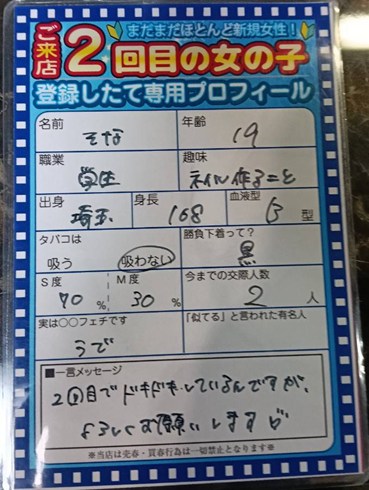 まだまだほとんど新規女性！
ご来店2回目の女の子
登録したて専用プロフィール
名前 そな 年齢 19
職業 学生 趣味 ネイル作ること
出身 埼玉 身長 168 血液型 B 型
タバコは 勝負下着って？
吸う 吸わない 黒
S度 M度 今までの交際人数
70% 30% 2人
実は○○フェチです 「似てる」と言われた有名人
うで
■一言メッセージ
2回目でドキドキしているんですが、
よろしくお願いします
※当店は売春・買春行為は一切禁止となります※